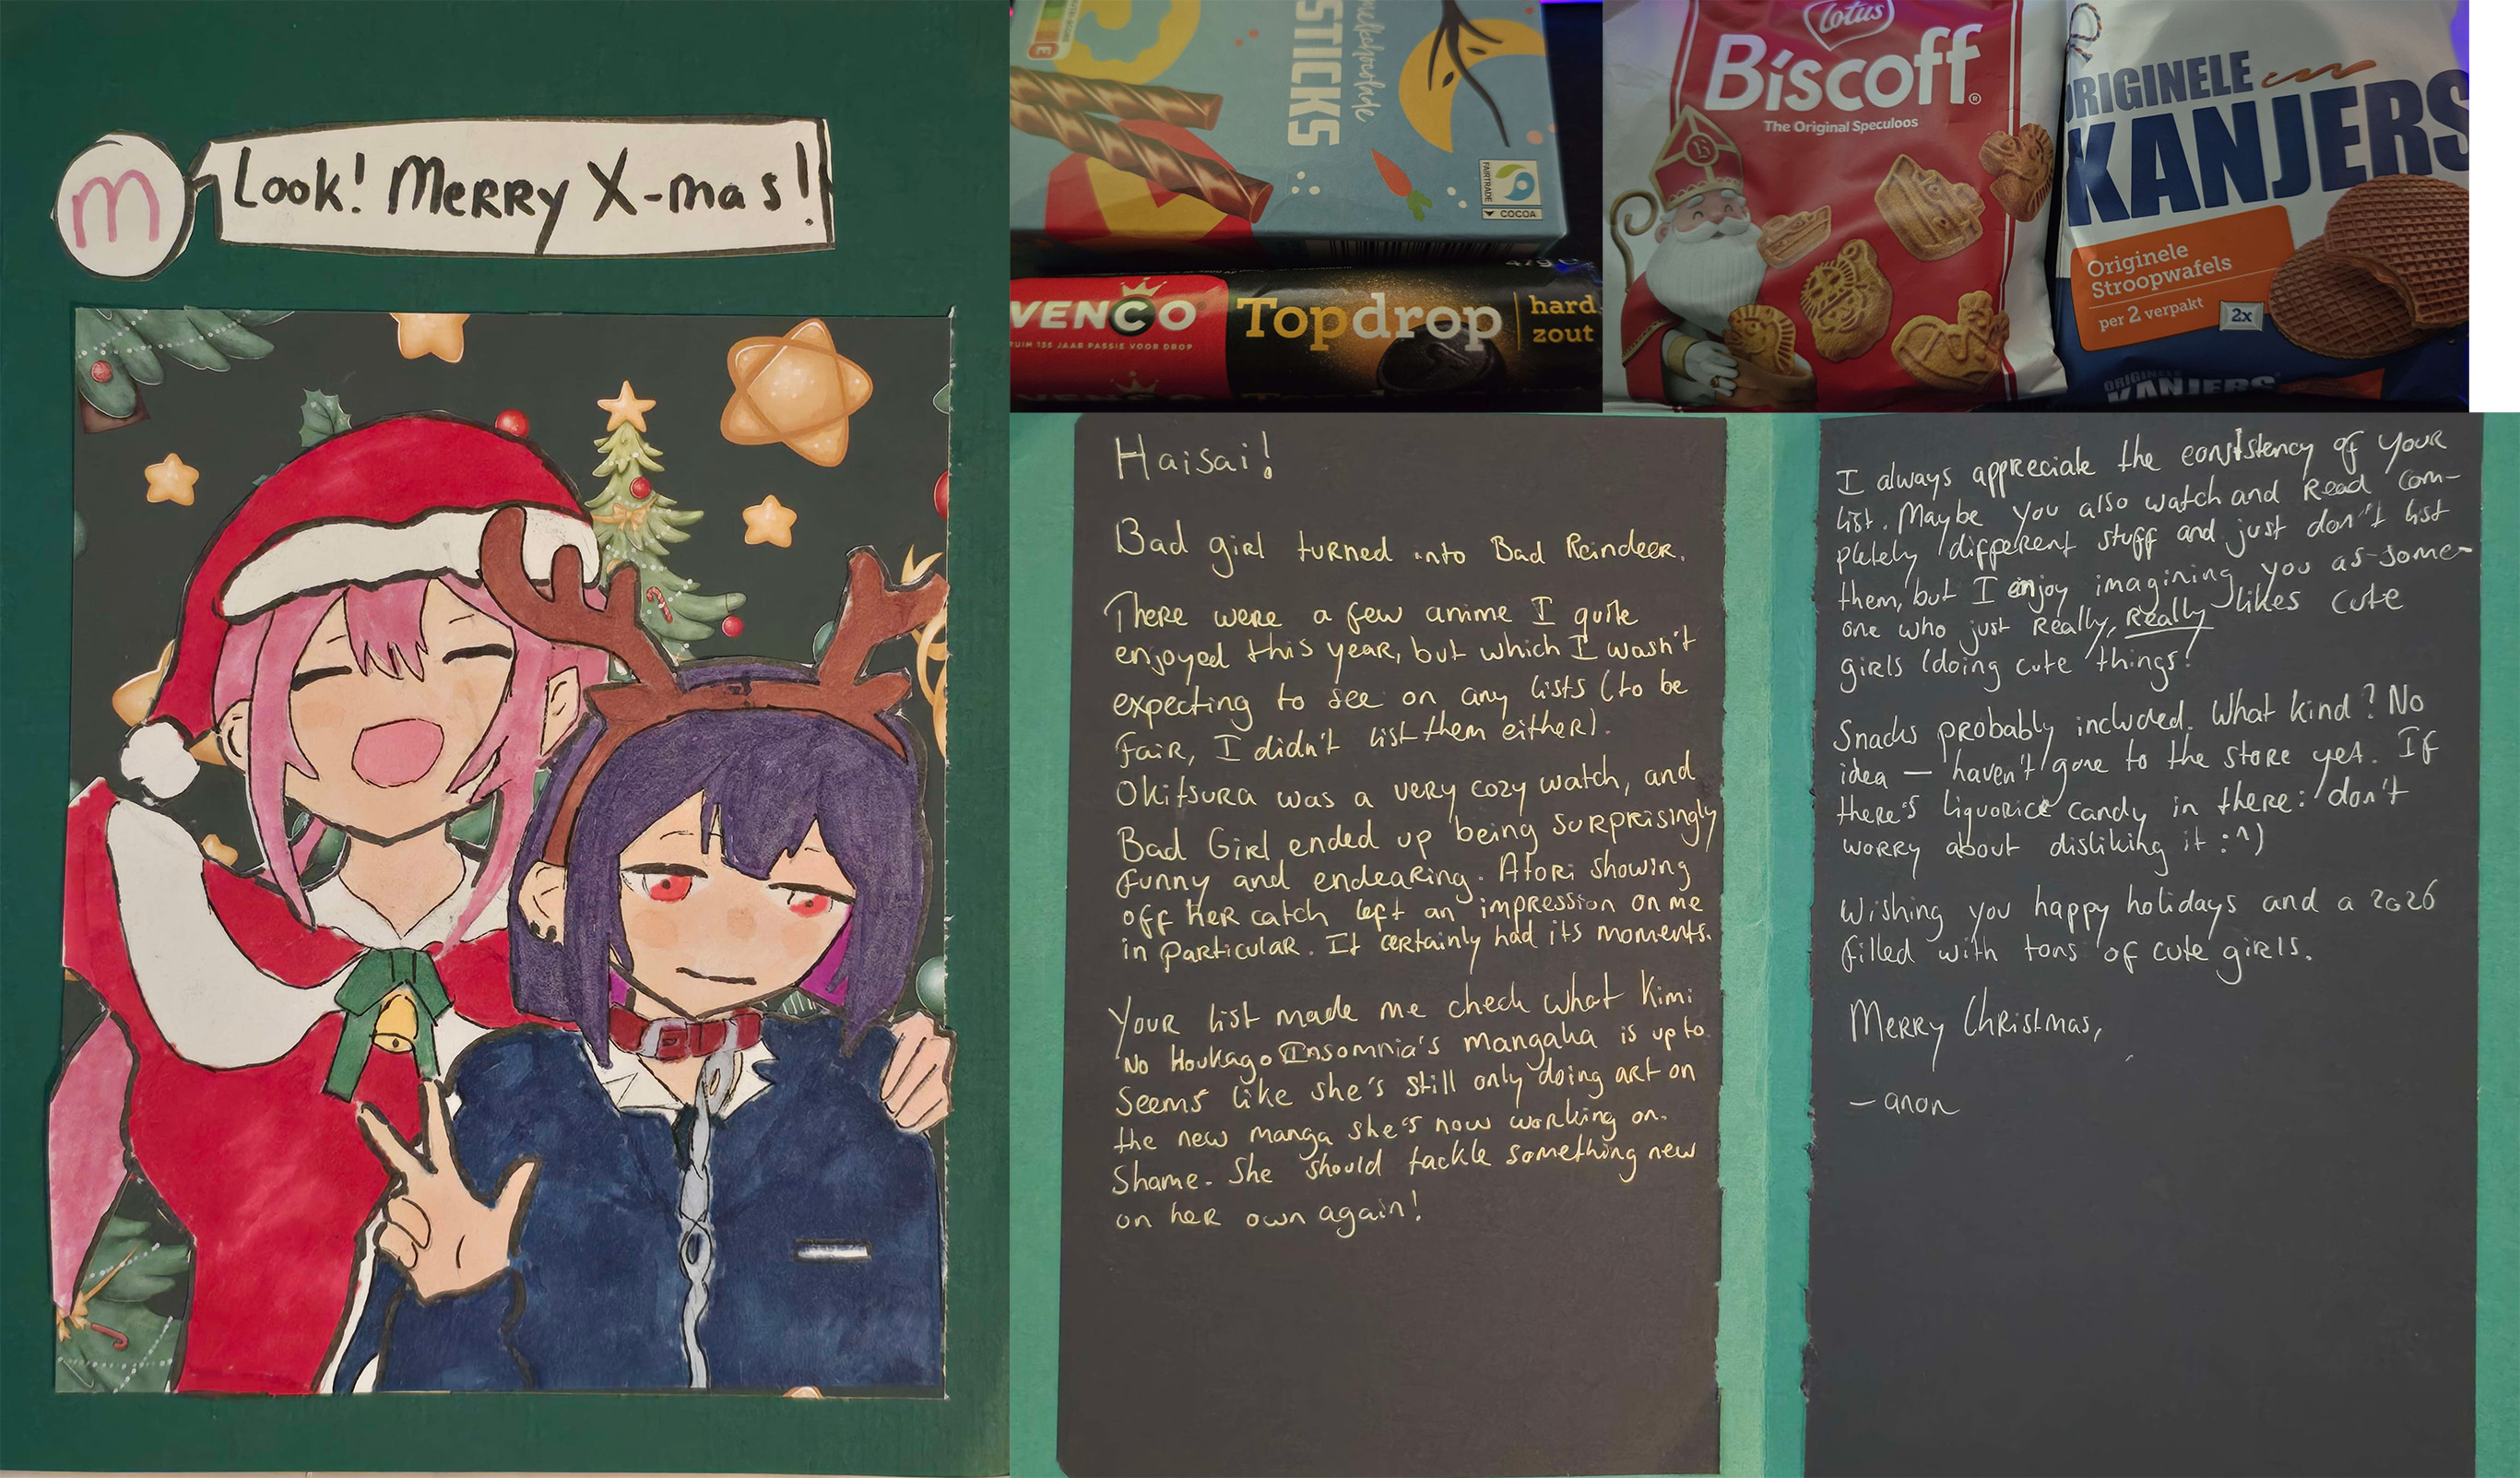 m
Look! Merry X-mas!
STICKS
melkchocolade
E
FAIRTRADE
COCOA
VENCO
RUIM 135 JAAR PASSIE VOOR DROP
Topdrop
hard
zout
Lotus
Biscoff
The Original Speculoos
ORIGINELE
KANJERS
Originele
Stroopwafels
per 2 verpakt
2x
ORIGINELE
KANJERS
Haisai!
Bad girl turned into Bad Reindeer.
There were a few anime I quite
enjoyed this year, but which I wasn't
expecting to see on any lists (to be
fair, I didn't list them either).
Okitsura was a very cozy watch, and
Bad Girl ended up being surprisingly
funny and endearing. Atori showing
off her catch left an impression on me
in particular. It certainly had its moments.
Your list made me check what Kimi
No Houkago Insomnia's mangaka is up to.
Seems like she's still only doing art on
the new manga she's now working on.
Shame. She should tackle something new
on her own again!
I always appreciate the consistency of your
list. Maybe you also watch and read com-
pletely different stuff and just don't list
them, but I enjoy imagining you as some-
one who just really, really likes cute
girls (doing cute things)!
Snacks probably included. What kind? No
idea — haven't gone to the store yet. If
there's liquorice candy in there: don't
worry about disliking it :^)
Wishing you happy holidays and a 2026
filled with tons of cute girls.
Merry Christmas,
- anon